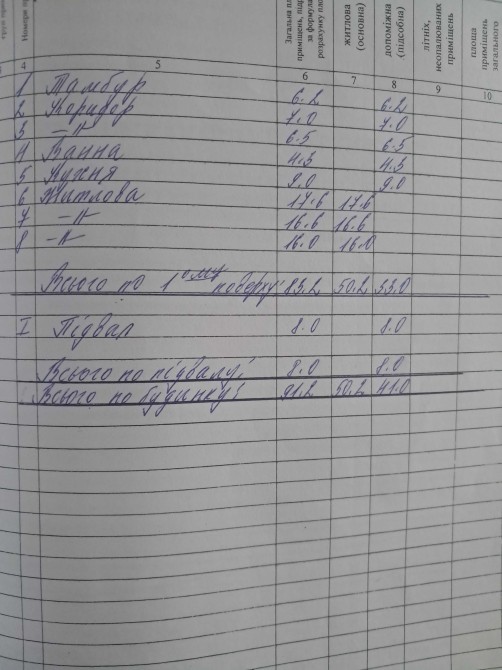 Номери
Загальна
приміщень,
за формула
розрахунку
житлова
(основна)
допоміжна
(підсобна)
літніх,
неопалюваних
приміщень
площа
приміщень
загального
4 5 6 7 8 9 10
1 Тамбур 6.2 6.2
2 Коридор 7.0 7.0
3 -"- 6.5 6.5
4 Ванна 4.3 4.3
5 Кухня 9.0 9.0
6 Житлова 17.6 17.6
7 -"- 16.6 16.6
8 -"- 16.0 16.0
Всього по 1ому поверху: 83.2 50.2 33.0
I Підвал 8.0 8.0
Всього по підвалу: 8.0 8.0
Всього по будинку: 91.2 50.2 41.0